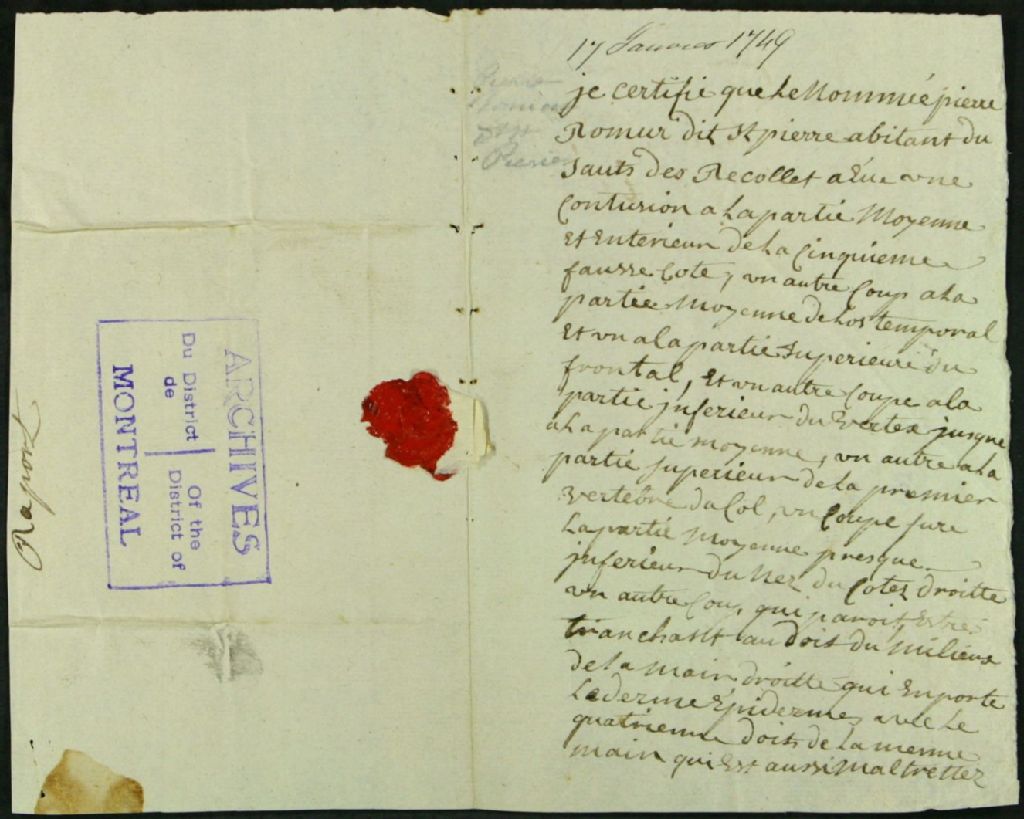 17 Janvier 1749
je certifie que le Nommée pierre
Romur dit St pierre abitant du
Sauts des Recollet a Eue une
Contusion a la partie Moyenne
Et Enterieur de la Cinquieme
fausse Cote, un autre Coup a la
partie Moyenne de Los temporal
Et un a la partie Superieure du
frontal, Et un autre Coupe a la
partie jnferieur du Vertex jusque
a La partie moyenne, un autre a la
partie superieur de la premier
vertebre du Col, un Coupe sure
La partie Moyenne presque
jnferieur du Nez du Cotez droitte
un autre Coup qui paroit Estre
tranchant au doit du Milieux
de la Main droitte qui Enporte
Le derme Epidermes avec Le
quatrieme doits de la meme
main qui Est aussi Maltrettez
Raport
ARCHIVES
Du District
de
Of the
District of
MONTREAL
Pierre